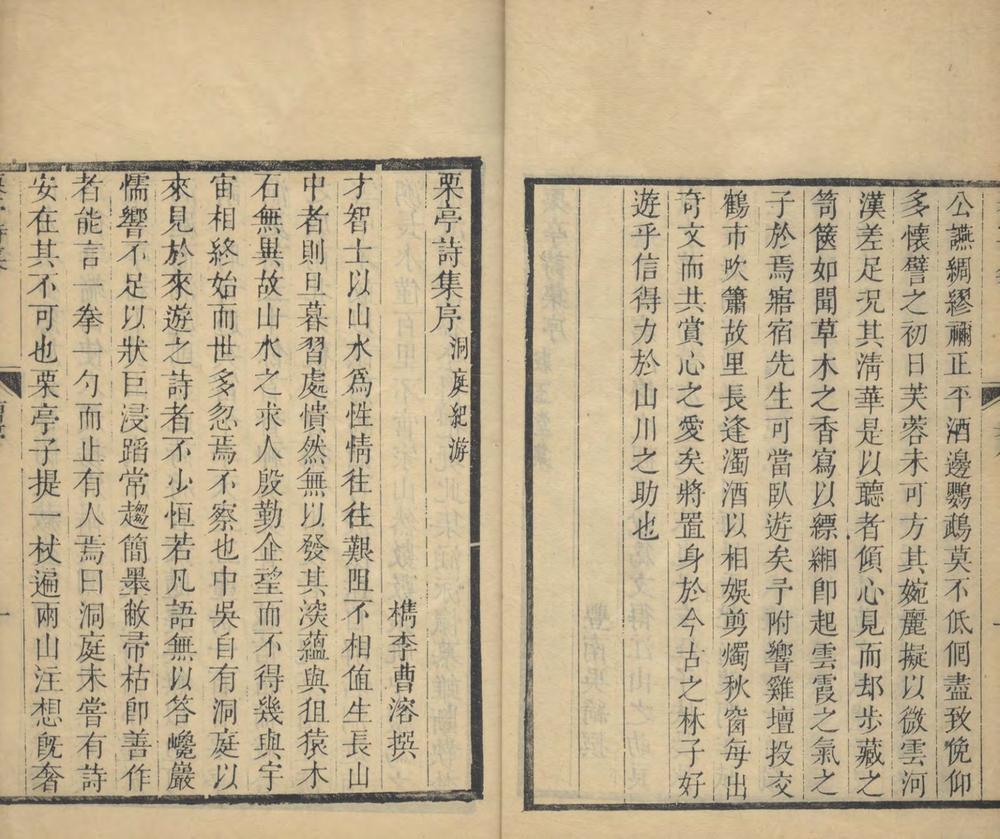 公讌綢繆禰正平酒邊鸚鵡莫不低佪盡致俛仰
多懷譬之初日芙蓉未可方其婉麗擬以微雲河
漢差足況其淸華是以聽者傾心見而却步藏之
笥篋如聞草木之香寫以縹緗卽起雲霞之氣之
子於焉寤宿先生可當臥遊矣予附響雞壇投交
鶴市吹簫故里長逢濁酒以相娛剪燭秋窗每出
奇文而共賞心之愛矣將置身於今古之林子好
遊乎信得力於山川之助也
栗亭詩集序 洞庭紀游
檇李曹溶撰
才智士以山水爲性情往往艱阻不相値生長山
中者則旦暮習處憒然無以發其渙蘊與狙猿木
石無異故山水之求人殷勤企望而不得幾與宇
宙相終始而世多忽焉不察也中吳自有洞庭以
來見於來遊之詩者不少恒若凡語無以答巉巖
懦響不足以狀巨浸蹈常趨簡墨敝帚枯卽善作
者能言一拳一勺而止有人焉曰洞庭未嘗有詩
安在其不可也栗亭子提一杖遍兩山注想旣奢